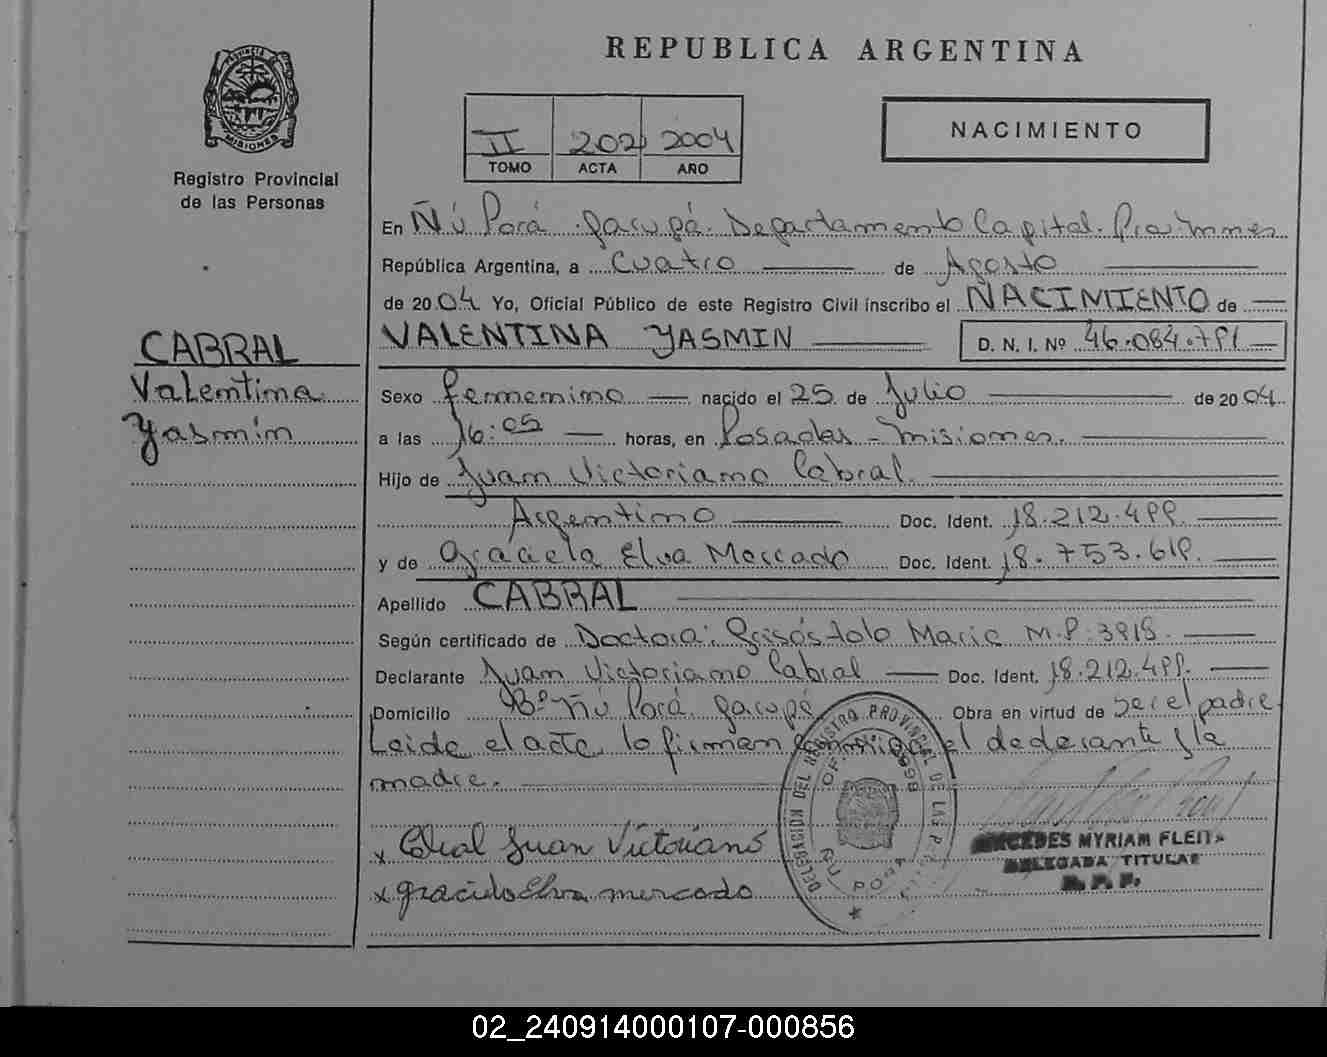 REPUBLICA ARGENTINA
PROVINCIA DE
MISIONES
Registro Provincial
de las Personas
II 202 2004
TOMO ACTA AÑO
NACIMIENTO
En Ñú Porá Garupá. Departamento Capital.
República Argentina, a Cuatro de Agosto
de 2004 Yo, Oficial Público de este Registro Civil inscribo el NACIMIENTO de
VALENTINA YASMIN D. N. I. Nº 46.084.791
CABRAL
Valentina
Yasmín
Sexo femenino nacido el 25 de Julio de 2004
a las 16:05 horas, en Posadas - Misiones.
Hijo de Juan Victoriano Cabral.
Argentino Doc. Ident. 18.212.499.
y de Graciela Elva Mercado Doc. Ident. 18.753.619.
Apellido CABRAL
Según certificado de Doctora: Grisóstolo Marie M.P. 3918.
Declarante Juan Victoriano Cabral Doc. Ident. 18.212.499.
Domicilio Bº Ñú Porá Garupá Obra en virtud de ser el padre
Leida el acta, lo firman conmigo el declarante y la
madre.
x Cabral Juan Victoriano
x graciela Elva mercado
DELEGACION DEL REGISTRO PROVINCIAL DE LAS
ÑU PORA
MERCEDES MYRIAM FLEITA
DELEGADA TITULAR
R. P. P.
02_240914000107-000856